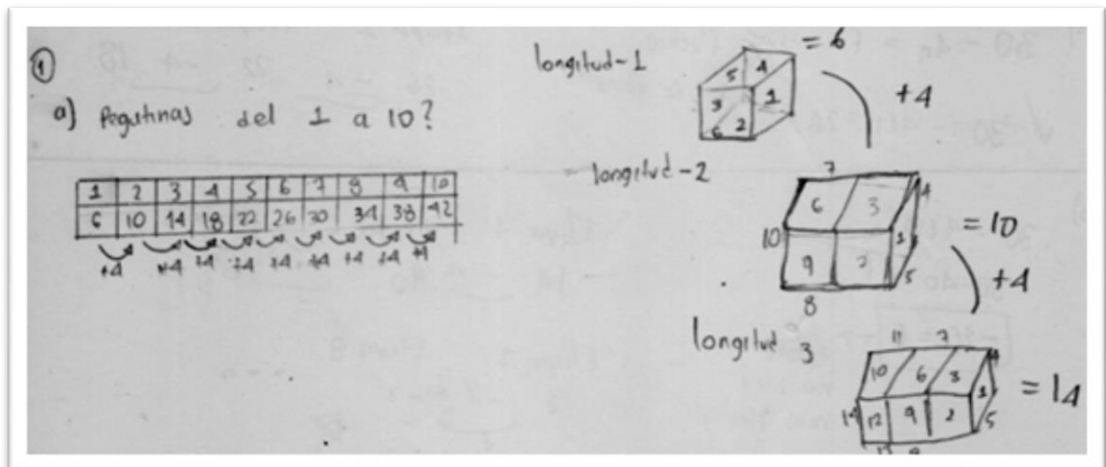 ①
a) Pegatinas del 1 a 10?
1 2 3 4 5 6 7 8 9 10
6 10 14 18 22 26 30 34 38 42
+4 +4 +4 +4 +4 +4 +4 +4 +4
longitud-1
5 4
3 1
6 2
= 6
+4
longitud-2
7
6 3 4
10 9 2 1 5
8
= 10
+4
longitud 3
11 7
10 6 3 4
14 12 9 2 1 5
= 14